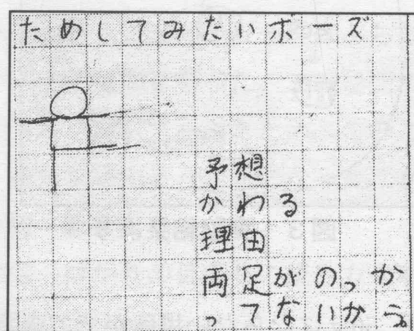 ためしてみたいポーズ
予想
かわる
理由
両足がのっか
ってないから。